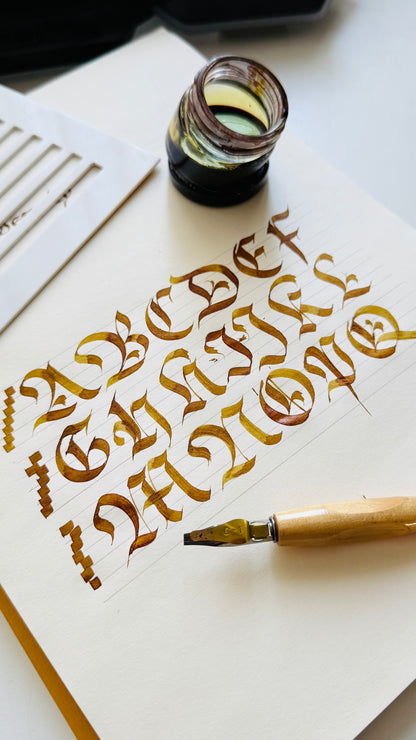 A B C D E F
G H I J K L
M N O P Q